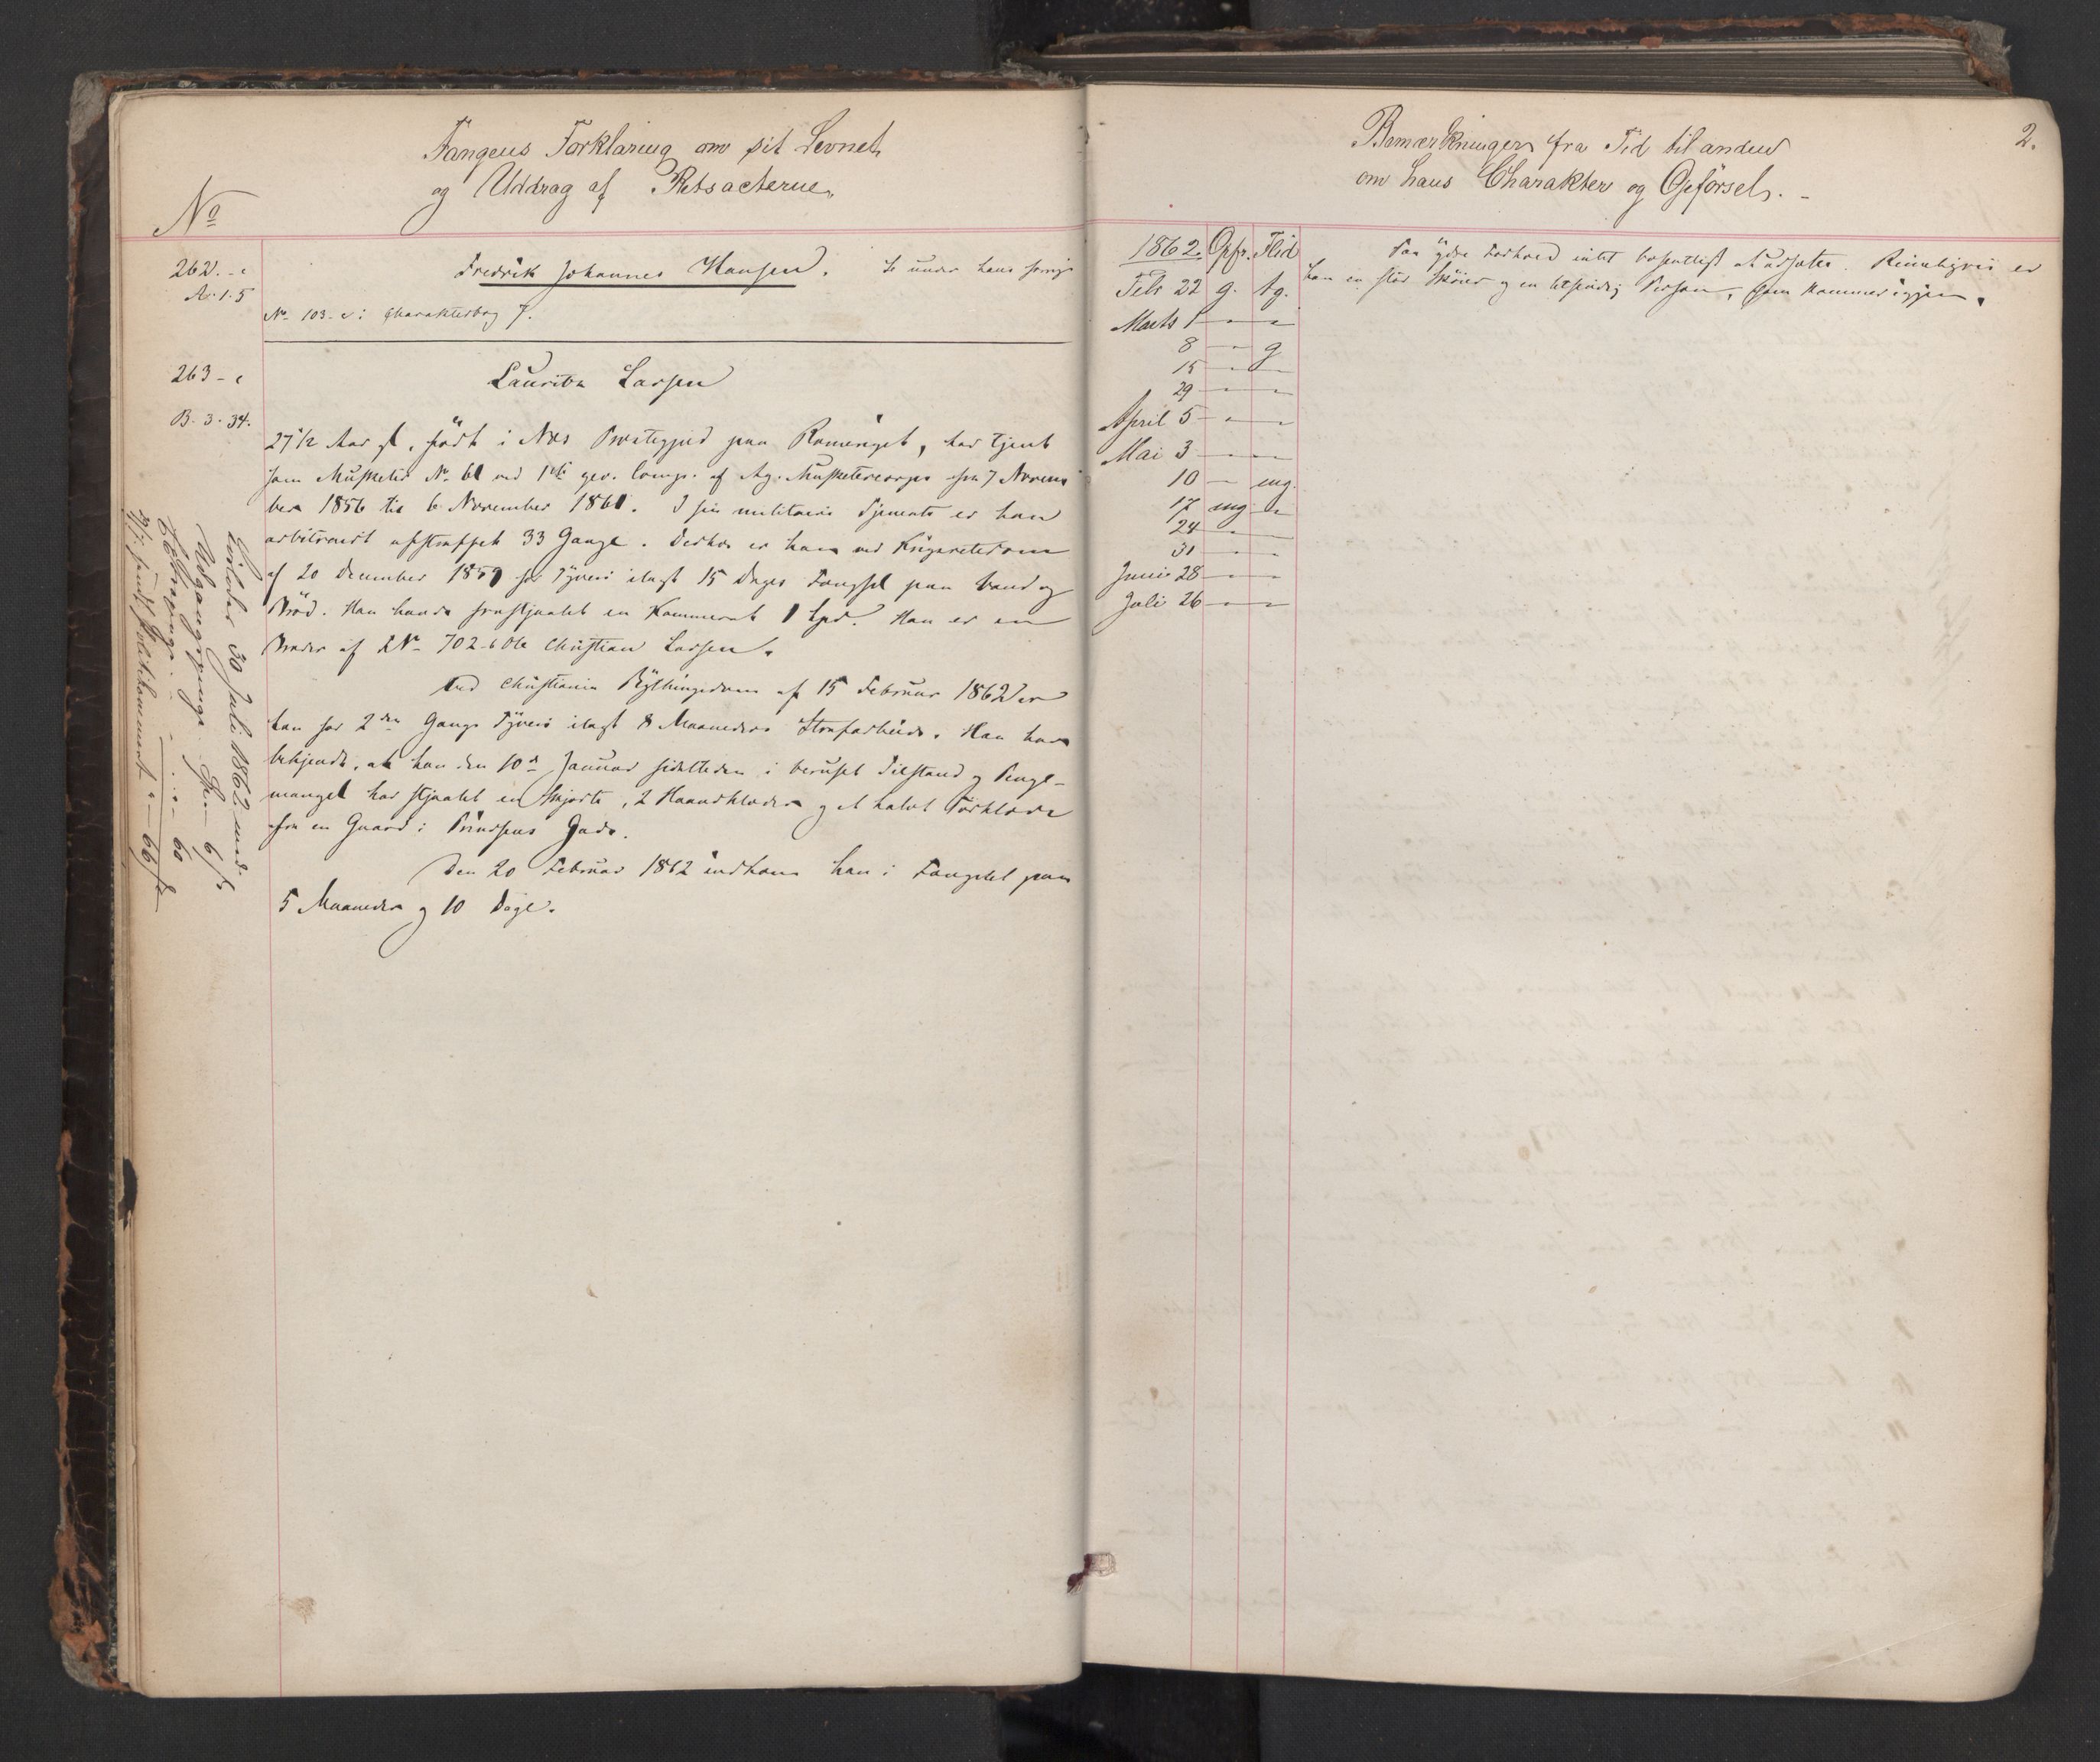 Fangens Forklaring om sit Levnet
og Uddrag af Retsacterne.
No
262.-c
A. 1. 5
Fredrik Johannes Hansen. Se under hans forrige
No 103-c i Charakterbog 7.
263-c
B. 3. 34.
Lauritz Larsen
27 1/2 Aar gl. født i Næs Præstegjeld paa Romerige, har tjent
som Musketer No 61 ved 1ste gev. Comp. af Ag. Musketercorps fra 7 Novem
ber 1856 til 6 November 1861. I sin militaire Tjeneste er han
arbitrairt afstraffet 33 Gange. Desuden er han ved Krigsretsdom
af 20 December 1859 for Tyveri ilagt 15 Dages Fængsel paa Vand og
Brød. Han havde frastjaalet en Kammerat 1 Spd. Han er en
Broder af No 702-b Ole Christian Larsen.
Ved Christiania Bythingsdom af 15 Februar 1862 er
han for 2den Gangs Tyveri ilagt 8 Maaneders Strafarbeide. Han har
bekjendt, at han den 10de Januar sidstleden i beruset Tilstand og Penge-
mangel har stjaalet en Skjorte, 2 Haandklæder og et halvt Törklæde
fra en Gaard i Prindsens Gade.
Den 20 Februar 1862 indkom han i Fængslet paa
5 Maaneder og 10 Dage.
Løsladt 30 Juli 1862 med
Udgangspenge 6 ß
60
sendt Politikammeret 66 ß
Bemærkninger fra Tid til anden
om hans Charakter og Opførsel. -
2.
1862. Opfr. Flid
Febr 22 g. tg.
Marts 1 - " - " -
8 - " - g
15 - " - " -
29 - " - " -
April 5 - " - " -
Mai 3 - " - " -
10 - " - mg.
17 mg - " -
24 - " - " -
31 - " - " -
Juni 28 - " - " -
Juli 26 - " - " -
Paa hans Forhold intet væsentligt at udsætte. Rimeligvis er
han en stor Skøier og en letsindig Person, som kommer igjen.